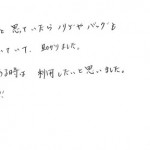 と思っていたら ノリゲやバッグも
いていて、助かりました。
る時は 利用したいと思いました。